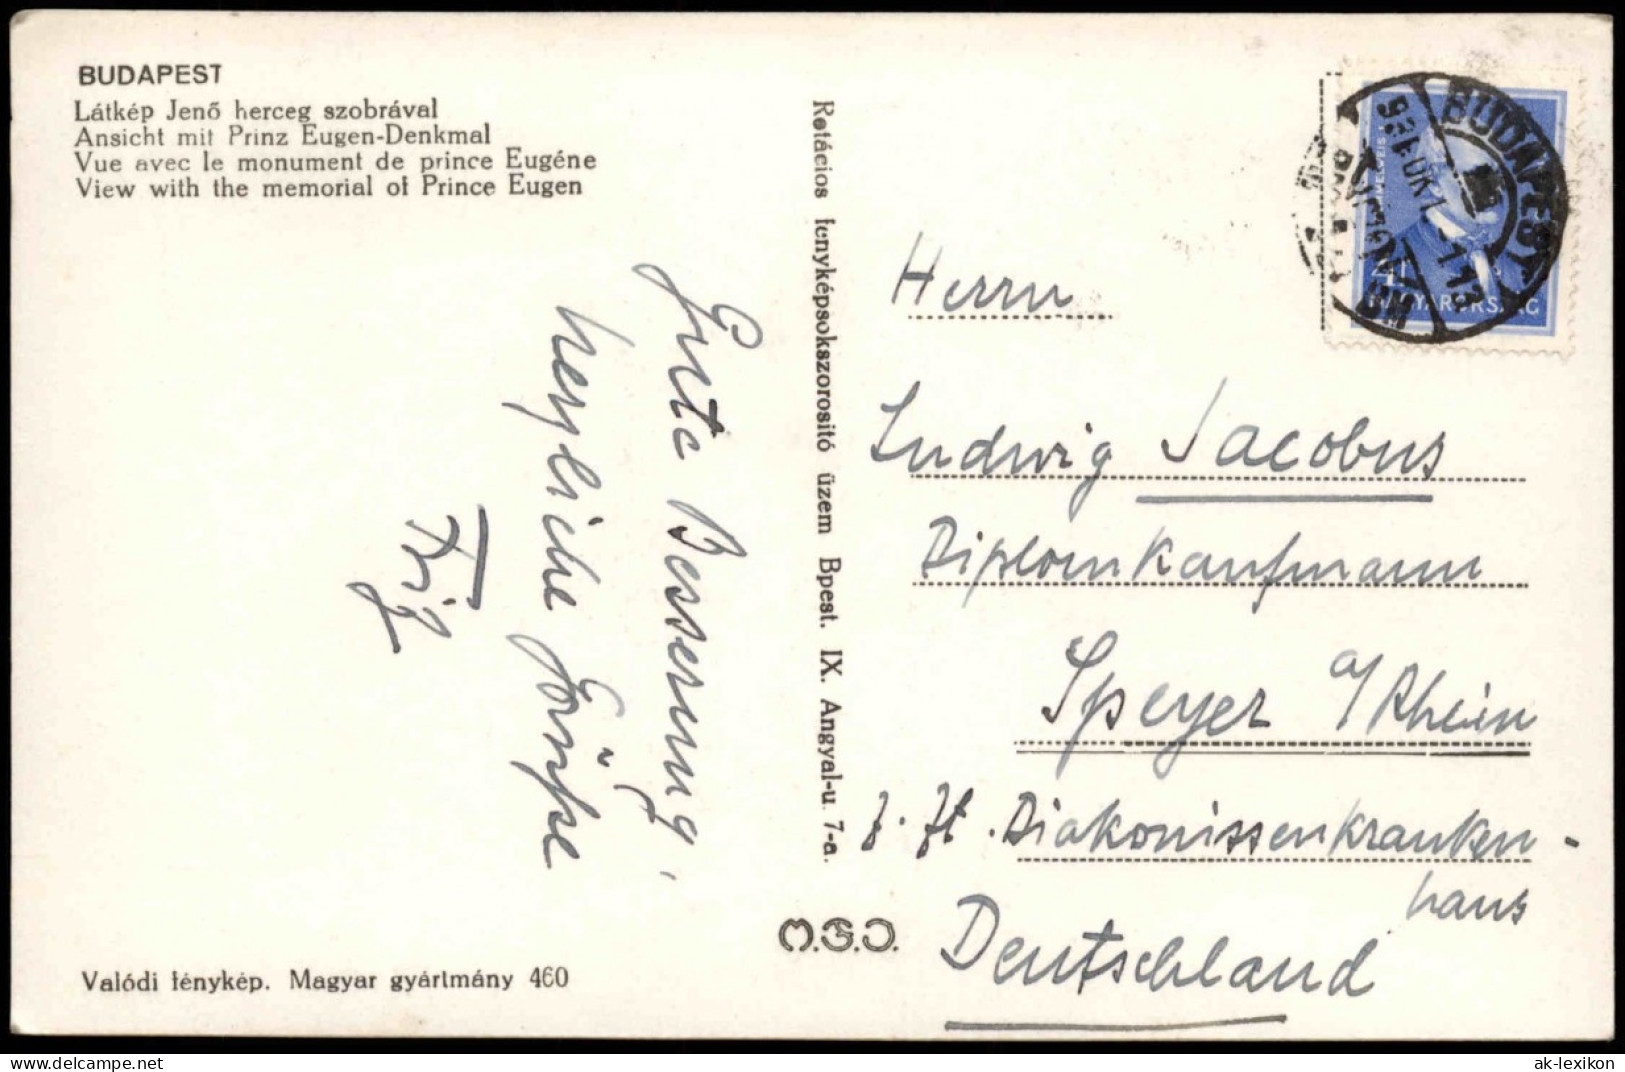 BUDAPEST
Látkép Jenő herceg szobrával
Ansicht mit Prinz Eugen-Denkmal
Vue avec le monument de prince Eugéne
View with the memorial of Prince Eugen
Gute Besserung,
herzliche Grüsse
Fritz
Valódi fénykép. Magyar gyártmány 460
Rotációs fényképsokszorositó üzem Bpest. IX. Angyal-u. 7-a.
M.S.J.
BUDAPEST
MAGYARORSZÁG
Herrn
Ludwig Jacobus
Diplomkaufmann
Speyer a/Rhein
z. Zt. Diakonissenkranken-
haus
Deutschland
delcampe.net
ak-lexikon